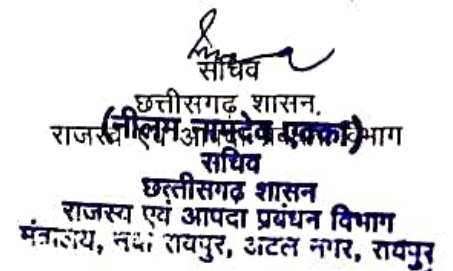 सचिव
छत्तीसगढ़ शासन,
राजस्व एवं आपदा प्रबंधन विभाग
(नीलम नामदेव एक्का)
सचिव
छत्तीसगढ़ शासन
राजस्व एवं आपदा प्रबंधन विभाग
मंत्रालय, नवा रायपुर, अटल नगर, रायपुर